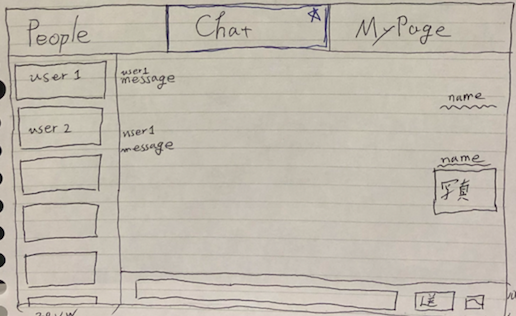 People
Chat
MyPage
user 1
user 2
user1
message
user1
message
name
name
写真